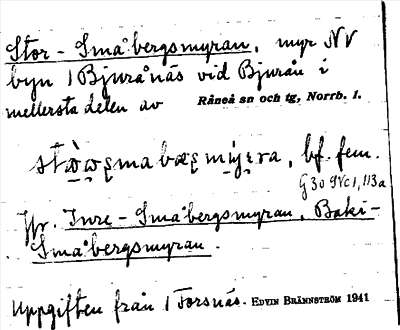 Stor-Småbergsmyran, myr NV
byn 1 Bjurånäs vid Bjurån i
mellersta delen av Råneå sn och tg, Norrb. l.
bf. fem.
Jfr. Inre-Småbergsmyran, Baki-
Småbergsmyran.
Uppgiften från 1 Forsnäs. EDVIN BRÄNNSTRÖM 1941